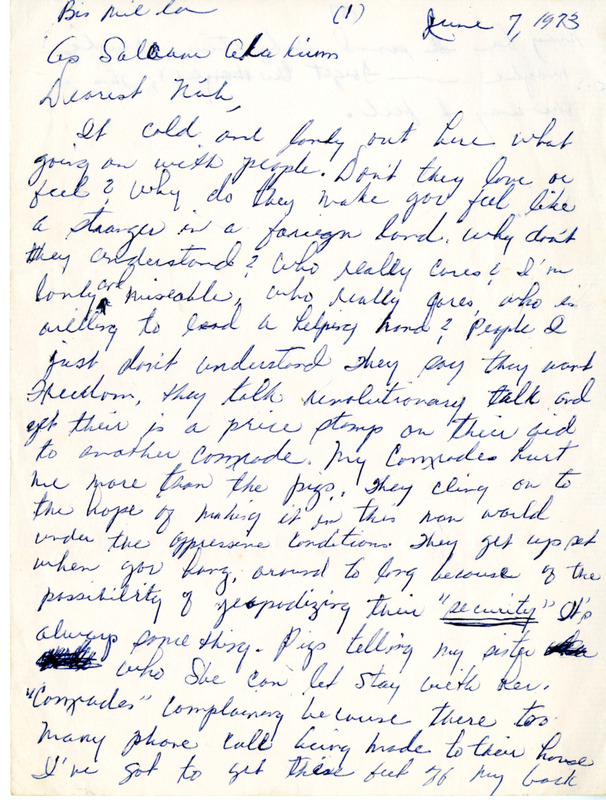 Bis mil la (1) June 7, 1973
As Salaam Alakium
Dearest Nuh,
It cold and lonly out here what
going on with people. Don't they love or
feel? Why do they make you feel like
a stranger in a foreign land. Why don't
they understand? Who really cares? I'm
lonly and miseable, who really cares, who is
willing to lend a helping hand? People I
just don't understand They say they want
Freedom, they talk revolutionary talk and
yet their is a price stamp on their aid
to another comrade. My Comrades hurt
me more than the pigs. They cling on to
the hope of making it in this man world
under the oppressive conditions. They get upset
when you hang around to long because of the
possibility of jeopodizing their "security" It's
always something. Pigs telling my sister
who she can let stay with her.
"Comrades" complaining because there too
many phone call being made to their house
I've got to get these feet off my back